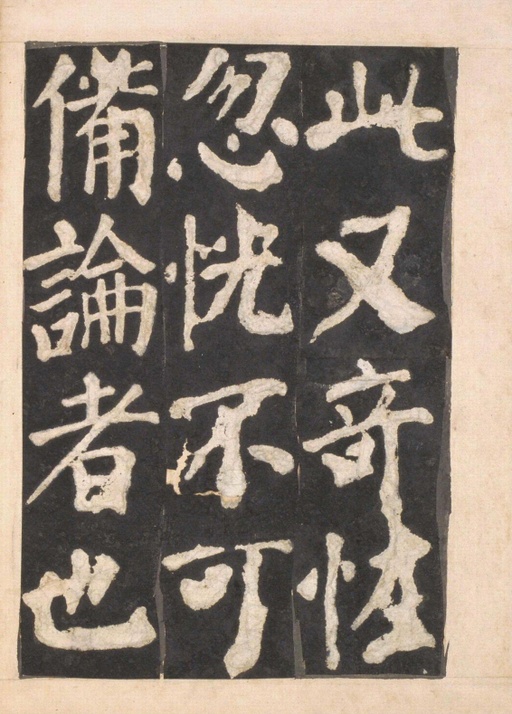 此又奇怪
忽恍不可
備論者也